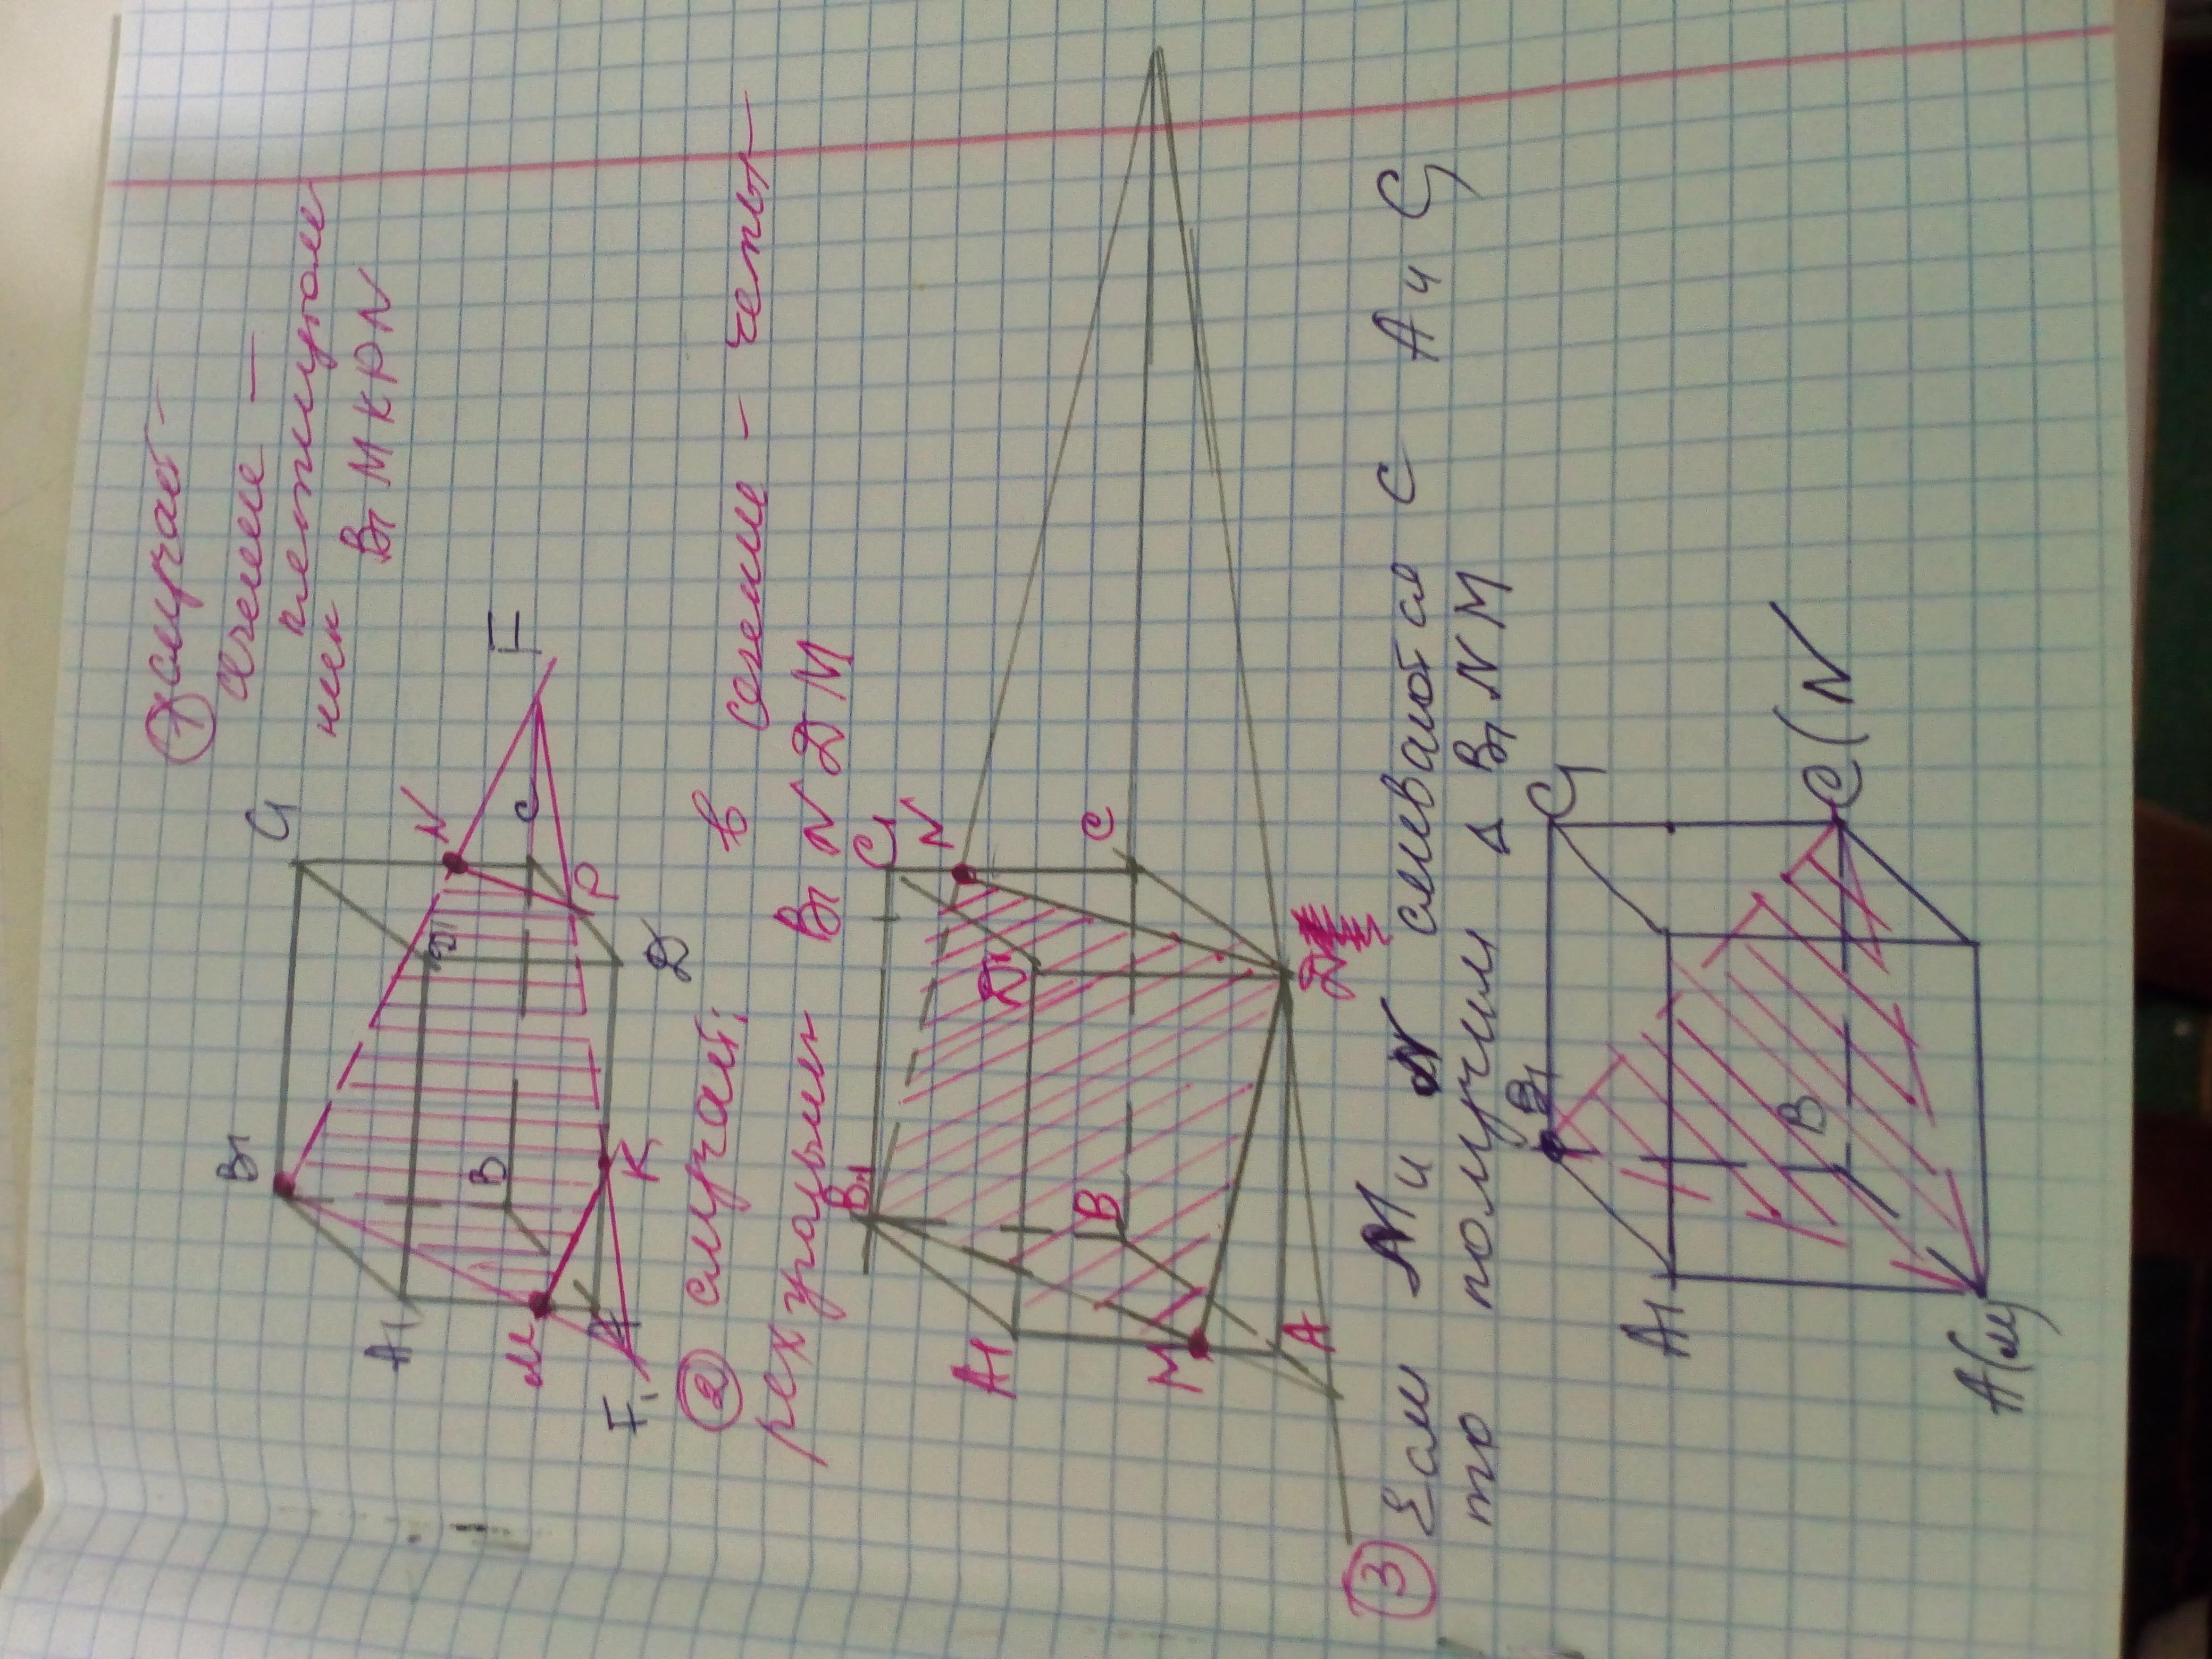 ① случай -
сечение -
пятиугольник
ник B1 M K P N
B1
C1
A1
D1
N
M
B
C
F
P
A
K
D
F1
② случай: в сечении - четы-
рехугольник B1 N D M
B1
C1
N
A1
D1
B
C
M
A
D
③ Если M и N сливаются с A и C,
то получим Δ B1 N M
B1
C1
A1
B
C(N
A(M)